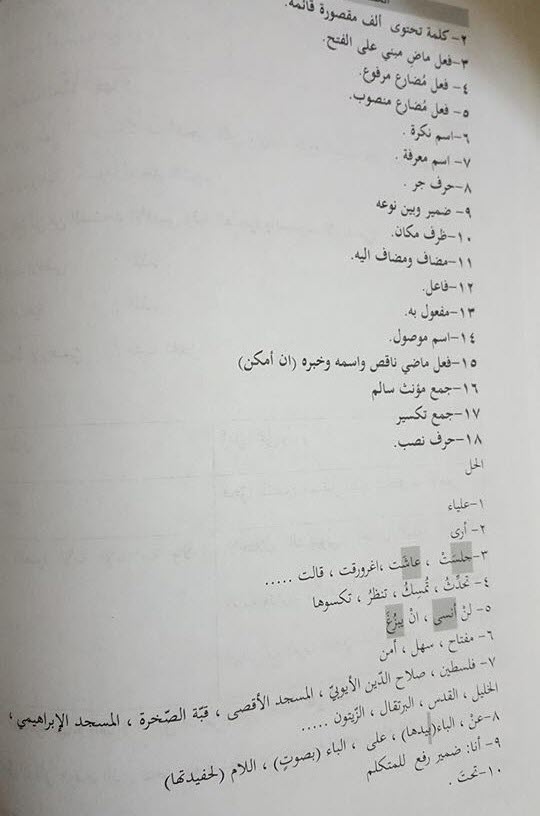 ٢-كلمة تحتوى ألف مقصورة قائمة.
٣-فعل ماضٍ مبني على الفتح.
٤- فعل مُضارع مرفوع.
٥- فعل مُضارع منصوب.
٦-اسم نكرة .
٧- اسم معرفة .
٨-حرف جر .
٩- ضمير وبين نوعه
١٠-ظرف مكان.
١١-مضاف ومضاف اليه.
١٢-فاعل.
١٣-مفعول به.
١٤-اسم موصول.
١٥-فعل ماضي ناقص واسمه وخبره (ان أمكن)
١٦-جمع مؤنث سالم
١٧-جمع تكسير
١٨-حرف نصب.
الحل
١-علياء
٢- أرى
٣-جلسَتْ ، عاشَت ،اغرورقت ، قالت .....
٤- تحدِّثُ ، تُمسِكُ ، تنظرُ ، تكسوها
٥- لنْ أنسى ، انْ يبزُغَ
٦- مفتاح ، سهل ، أمن
٧- فلسطين ، صلاح الدّين الأيوبيّ ، المسجد الأقصى ، قبّة الصّخرة ، المسجد الإبراهيمي ،
الخليل ، القدس ، البرتقال ، الزّيتون .....
٨-عنْ ، الباء(بيدها) ، على ، الباء (بصوتٍ) ، اللام (لحفيدتها)
٩- أنا: ضمير رفع للمتكلم
١٠-تحتَ .